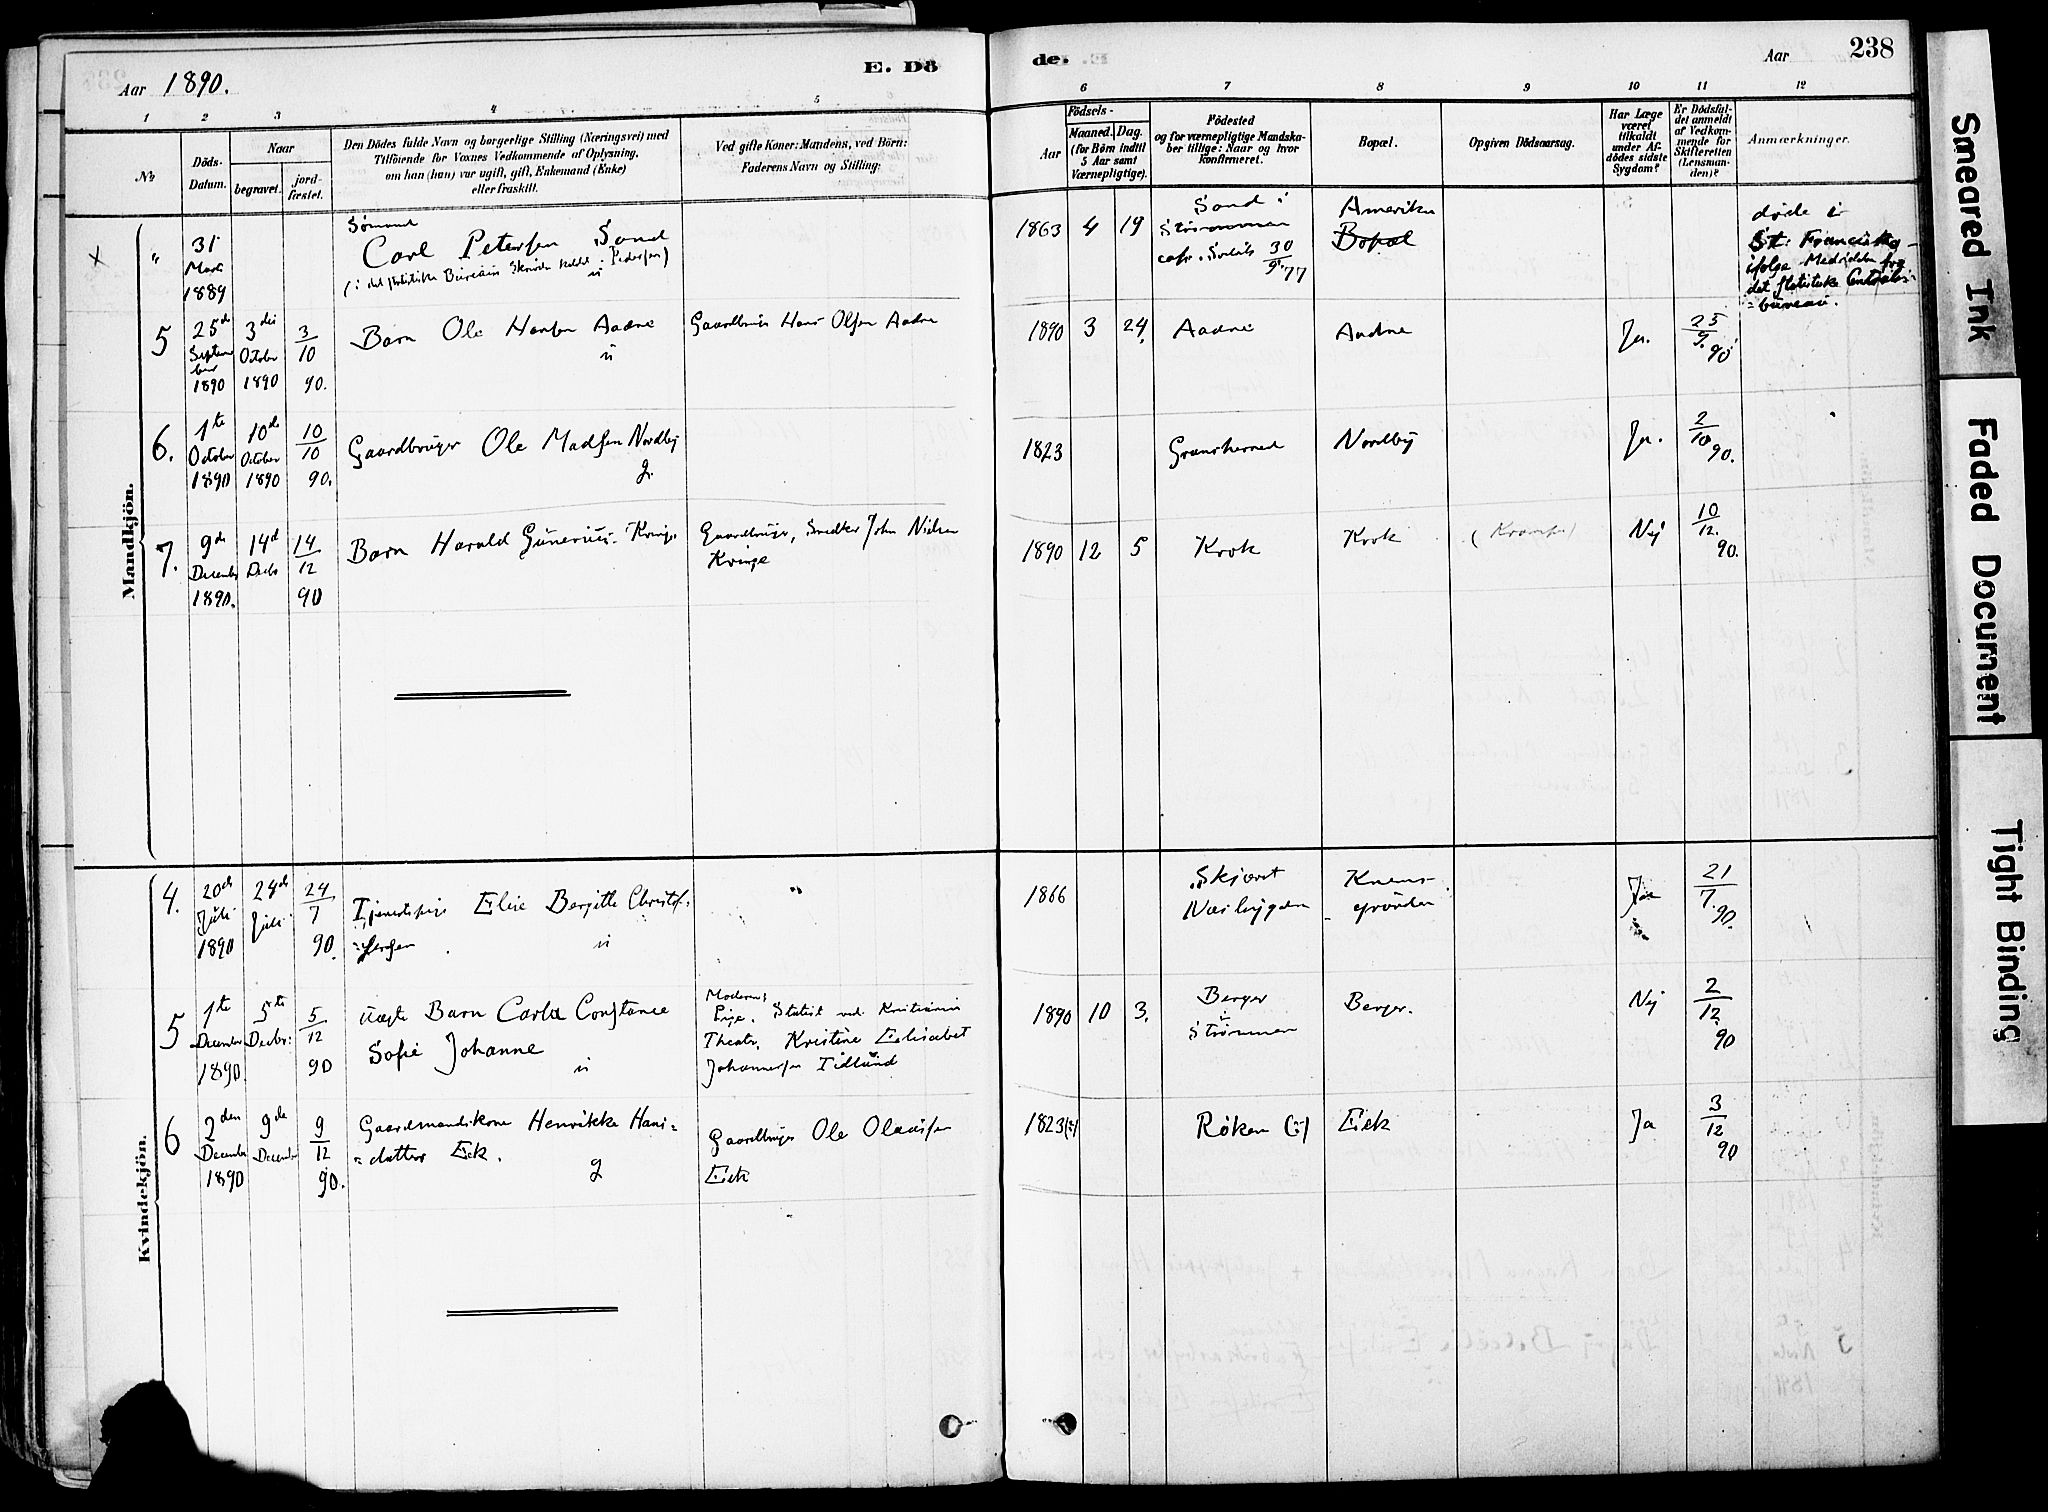 Aar 1890.
E. Dö
de.
Aar
238
1 2 3 4 5
6 7 8 9 10 11 12
№
Döds-
Datum.
Naar
begravet.
jord-
fæstet.
Den Dödes fulde Navn og borgerlige Stilling (Næringsvei) med
Tilföiende for Voxnes Vedkommende af Oplysning,
om han (hun) var ugift, gift, Enkemand (Enke)
eller fraskilt.
Ved gifte Koner: Mandens, ved Börn:
Faderens Navn og Stilling:
Födsels-
Aar
Maaned.
Dag.
(for Börn indtil
5 Aar samt
Værnepligtige).
Födested
og for værnepligtige Mandska-
ber tillige: Naar og hvor
konfirmeret.
Bopæl.
Opgiven Dödsaarsag.
Har Læge
været
tilkaldt
under Af-
dödes sidste
Sygdom?
Er Dödsfal-
det anmeldt
af Vedkom-
mende for
Skifteretten
(Lensman-
den)?
Anmærkninger.
Mandkjön.
× " 31 Mars 1889
Sømand
Carl Petersen Sand
(i det statistiske Bureaus Skrivelse kaldt Pedersen)
ú
1863 4 19
Sand i
Strømmen
30/9 77
Amerika
Bopæl
døde i
St: Francisko
ifølge Meddelelse fra
det statistiske Central-
=bureau.
5 25de September 1890 3die October 1890 3/10 90.
Barn Ole Hansen Aadne
ú
Gaardbruger Hans Olsen Aadne
1890 3 24. Aadne Aadne Ja. 25/9. 90
6. 1te October 1890 10de October 1890 10/10 90.
Gaardbruger Ole Madsen Nordby
g.
1823 Nordby Ja. 2/10 90.
7. 9de December 1890. 14d Decbr 14/12 90
Barn Harald Gunerius Kringe
Gaardbruger, Snedker John Nielsen
Kringe
1890 12 5 Krok Krok (Krampe) Nej 10/12. 90.
Kvindekjön.
4. 20de Juli 1890 24de Juli 24/7 90.
Tjenestepige Elise Bergitte Christof-
=fersen ú
"
1866
Skjøret
Næsbygden
Ja 21/7. 90.
5 1te December 1890. 5te Decbr: 5/12 90
uægte Barn Carla Constance
Sofie Johanne
ú
Moderen:
Pige, Statist ved Kristiania
Theater, Kristine Elisabet
Johannesen Tidlund
1890 10 3.
Berger
i
Strømmen
Berger. Nej 2/12. 90
6 2den December 1890 9de December 9/12 90.
Gaardmandskone Henrikke Hans=
=datter Eek. g
Gaardbruger Ole Olavesen
Eek
1823(?) Røken (?) Eek Ja 3/12 90
Smeared Ink
Faded Document
Tight Binding